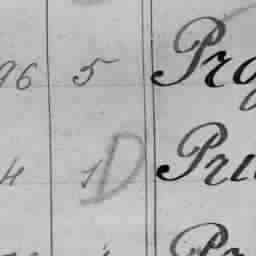 96 5 Pro
4 1 D Pru